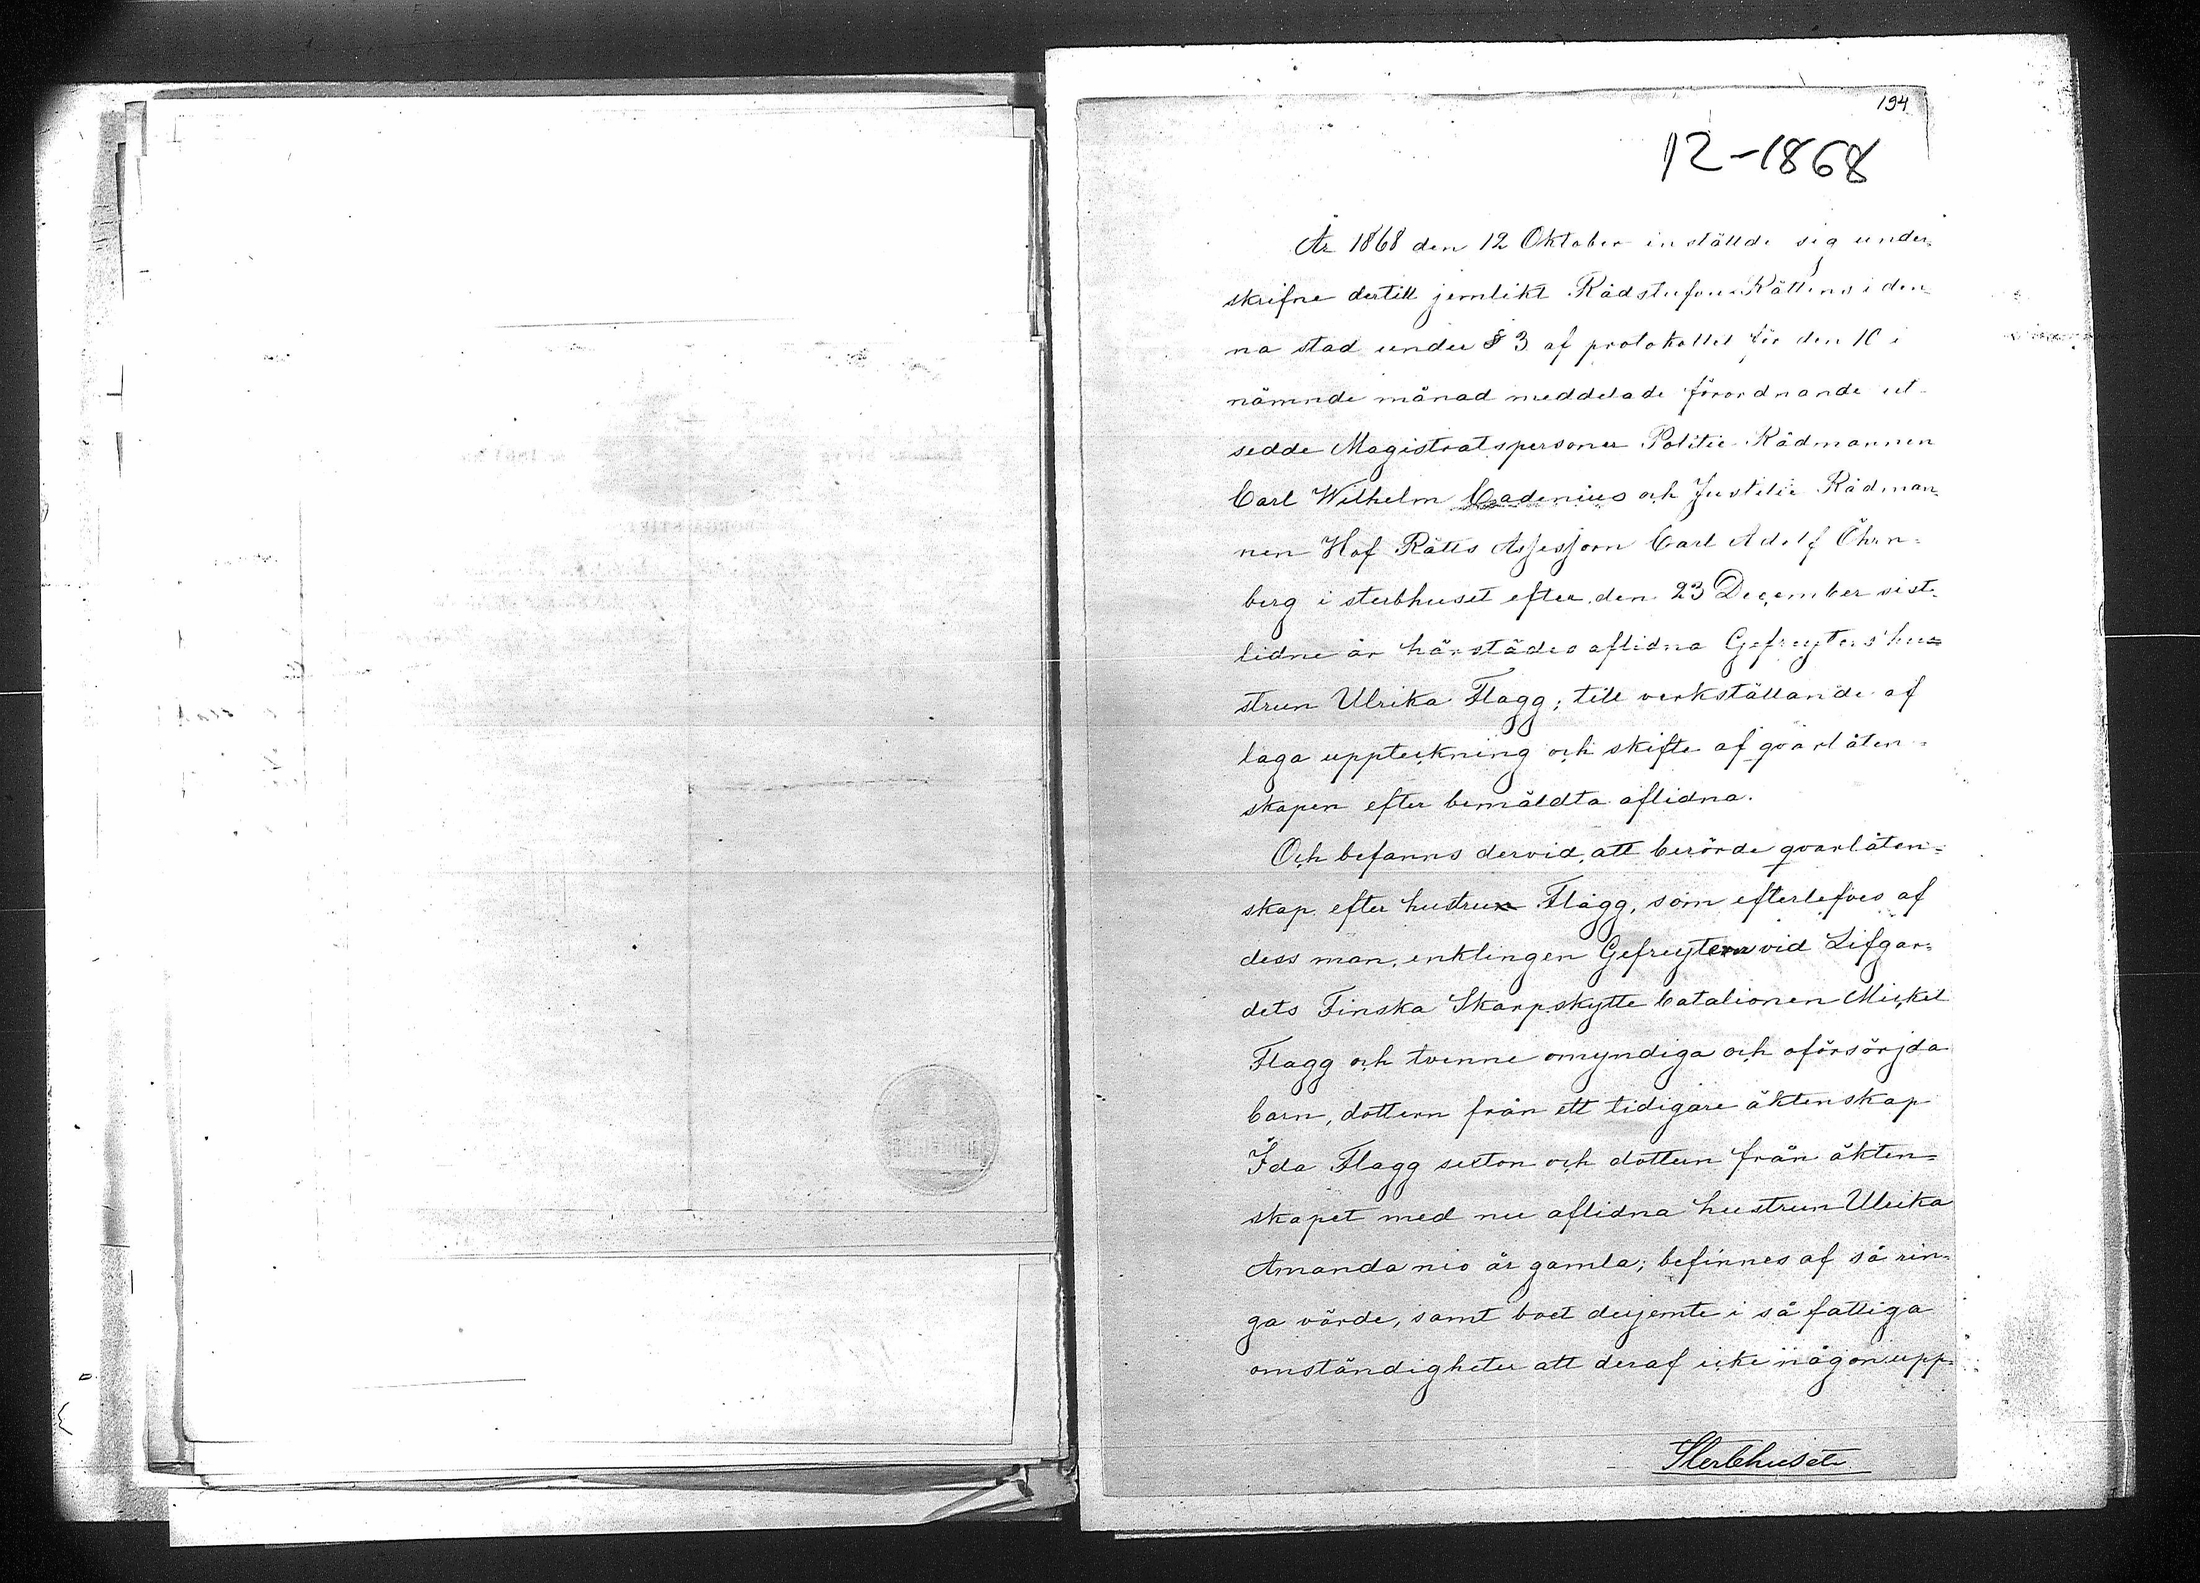 194
12-1868
År 1868 den 12 Oktober inställde sig under-
skrifne dertill jemlikt Rådstufvu Rättens i den-
na stad under § 3 af protokollet för den 10 i
nämnde månad meddelade förordnande ut-
sedde Magistratspersoner Politie Rådmannen
Carl Wilhelm Cadenius och Justitie Rådman-
nen Hof Rätts Assessorn Carl Adolf Öhrn=
berg i sterbhuset efter den 23 December sist-
lidne år härstädes aflidna Gefreyters hu=
strun Ulrika Flagg; till verkställande af
laga uppteckning och skifte af qvarlåten=
skapen efter bemäldta aflidna.
Och befanns dervid, att berörde qvarlåten=
skap efter hustrun Flagg, som efterlefves af
dess man, enklingen Gefreytern vid Lifgar=
dets Finska Skarpskytte batalionen Mickel
Flagg och tvenne omyndiga och oförsörjda
barn, dottern från ett tidigare äktenskap
Ida Flagg sexton och dottern från äkten=
skapet med nu aflidna hustrun Ulrika
Amanda nio år gamla; befinnes af så rin=
ga värde, samt boet derjemte i så fattiga
omständigheter att deraf icke någon upp=
Sterbhuset